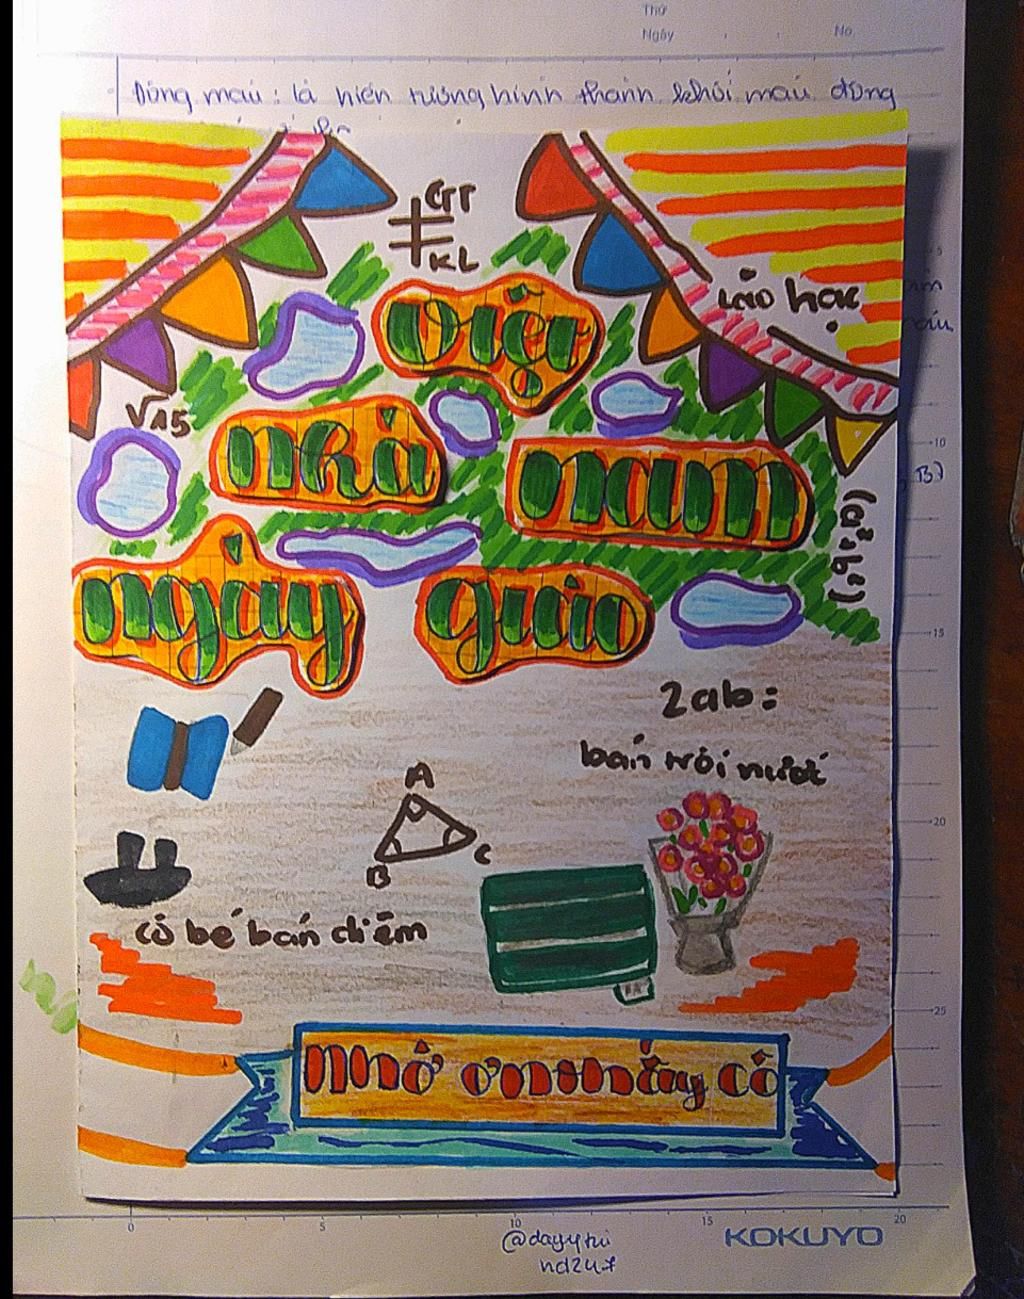 Thứ
Ngày
No.
Đông máu: là hiện tượng hình thành khối máu đông
GT
KL
Lão hạc
việt
√15
nhà
nam
ngày
giáo
2ab:
bánh trôi nước
A
B
C
cô bé bán diêm
nhớ ơn thầy cô
5
10
15
20
25
0
5
10
15
20
KOKUYO
@dayytui
nd247